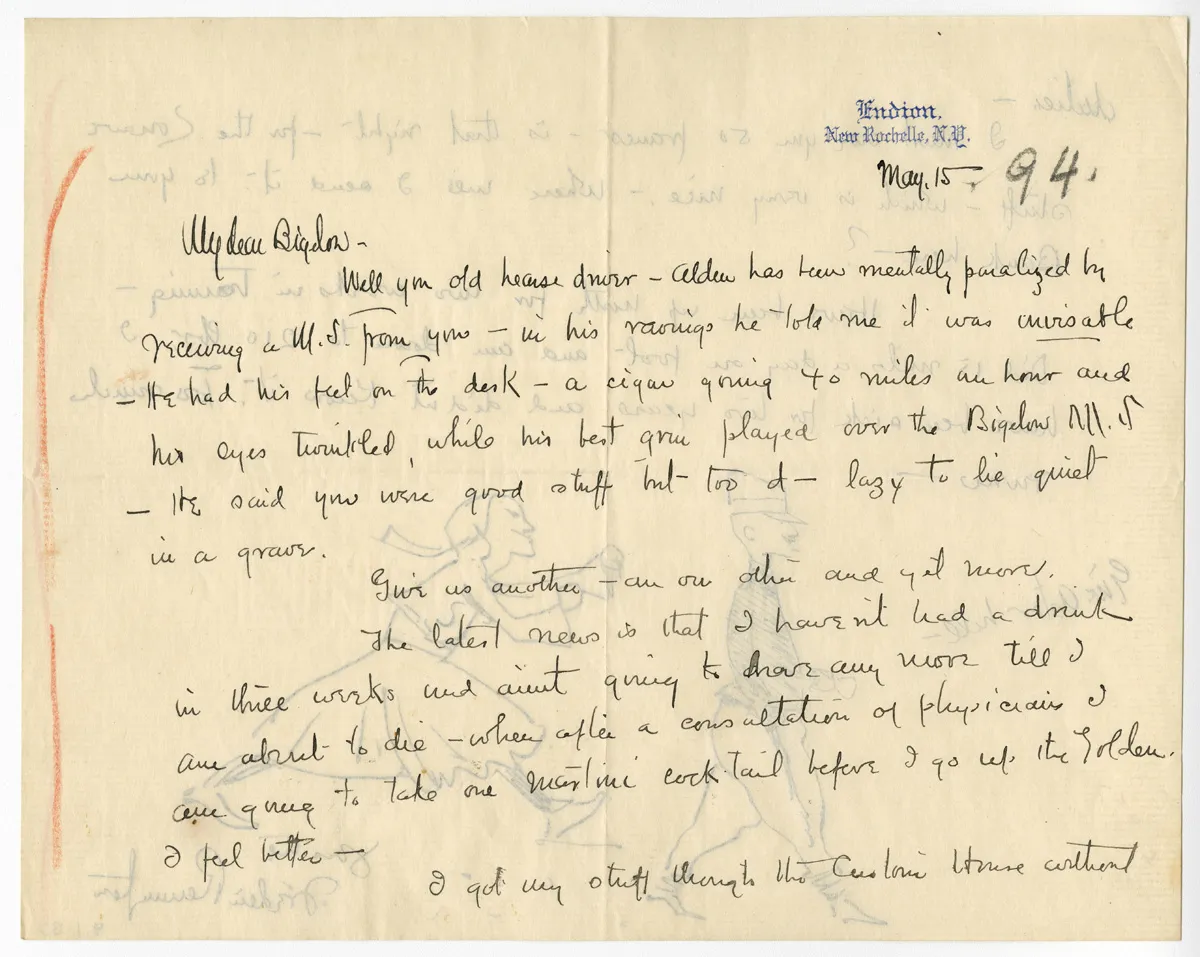 Endion,
New Rochelle, N.Y.
May. 15 - 94.
My dear Bigelow -
Well you old hearse driver - Alden has been mentally paralized by
receiving a M.S. from you - in his ravings he told me it was invisable
- He had his feet on the desk - a cigar going 40 miles an hour and
his eyes twinkled, while his best grin played over the Bigelow M.S
- He said you were good stuff but too d- lazy to lie quiet
in a grave.
Give us another - an other and yet more.
The latest news is that I havent had a drink
in three weeks and aint going to have any more till I
am about to die - when after a consultation of physicians I
am going to take one Martini cocktail before I go up the Golden.
I feel better -
I got my stuff through the Custom House without